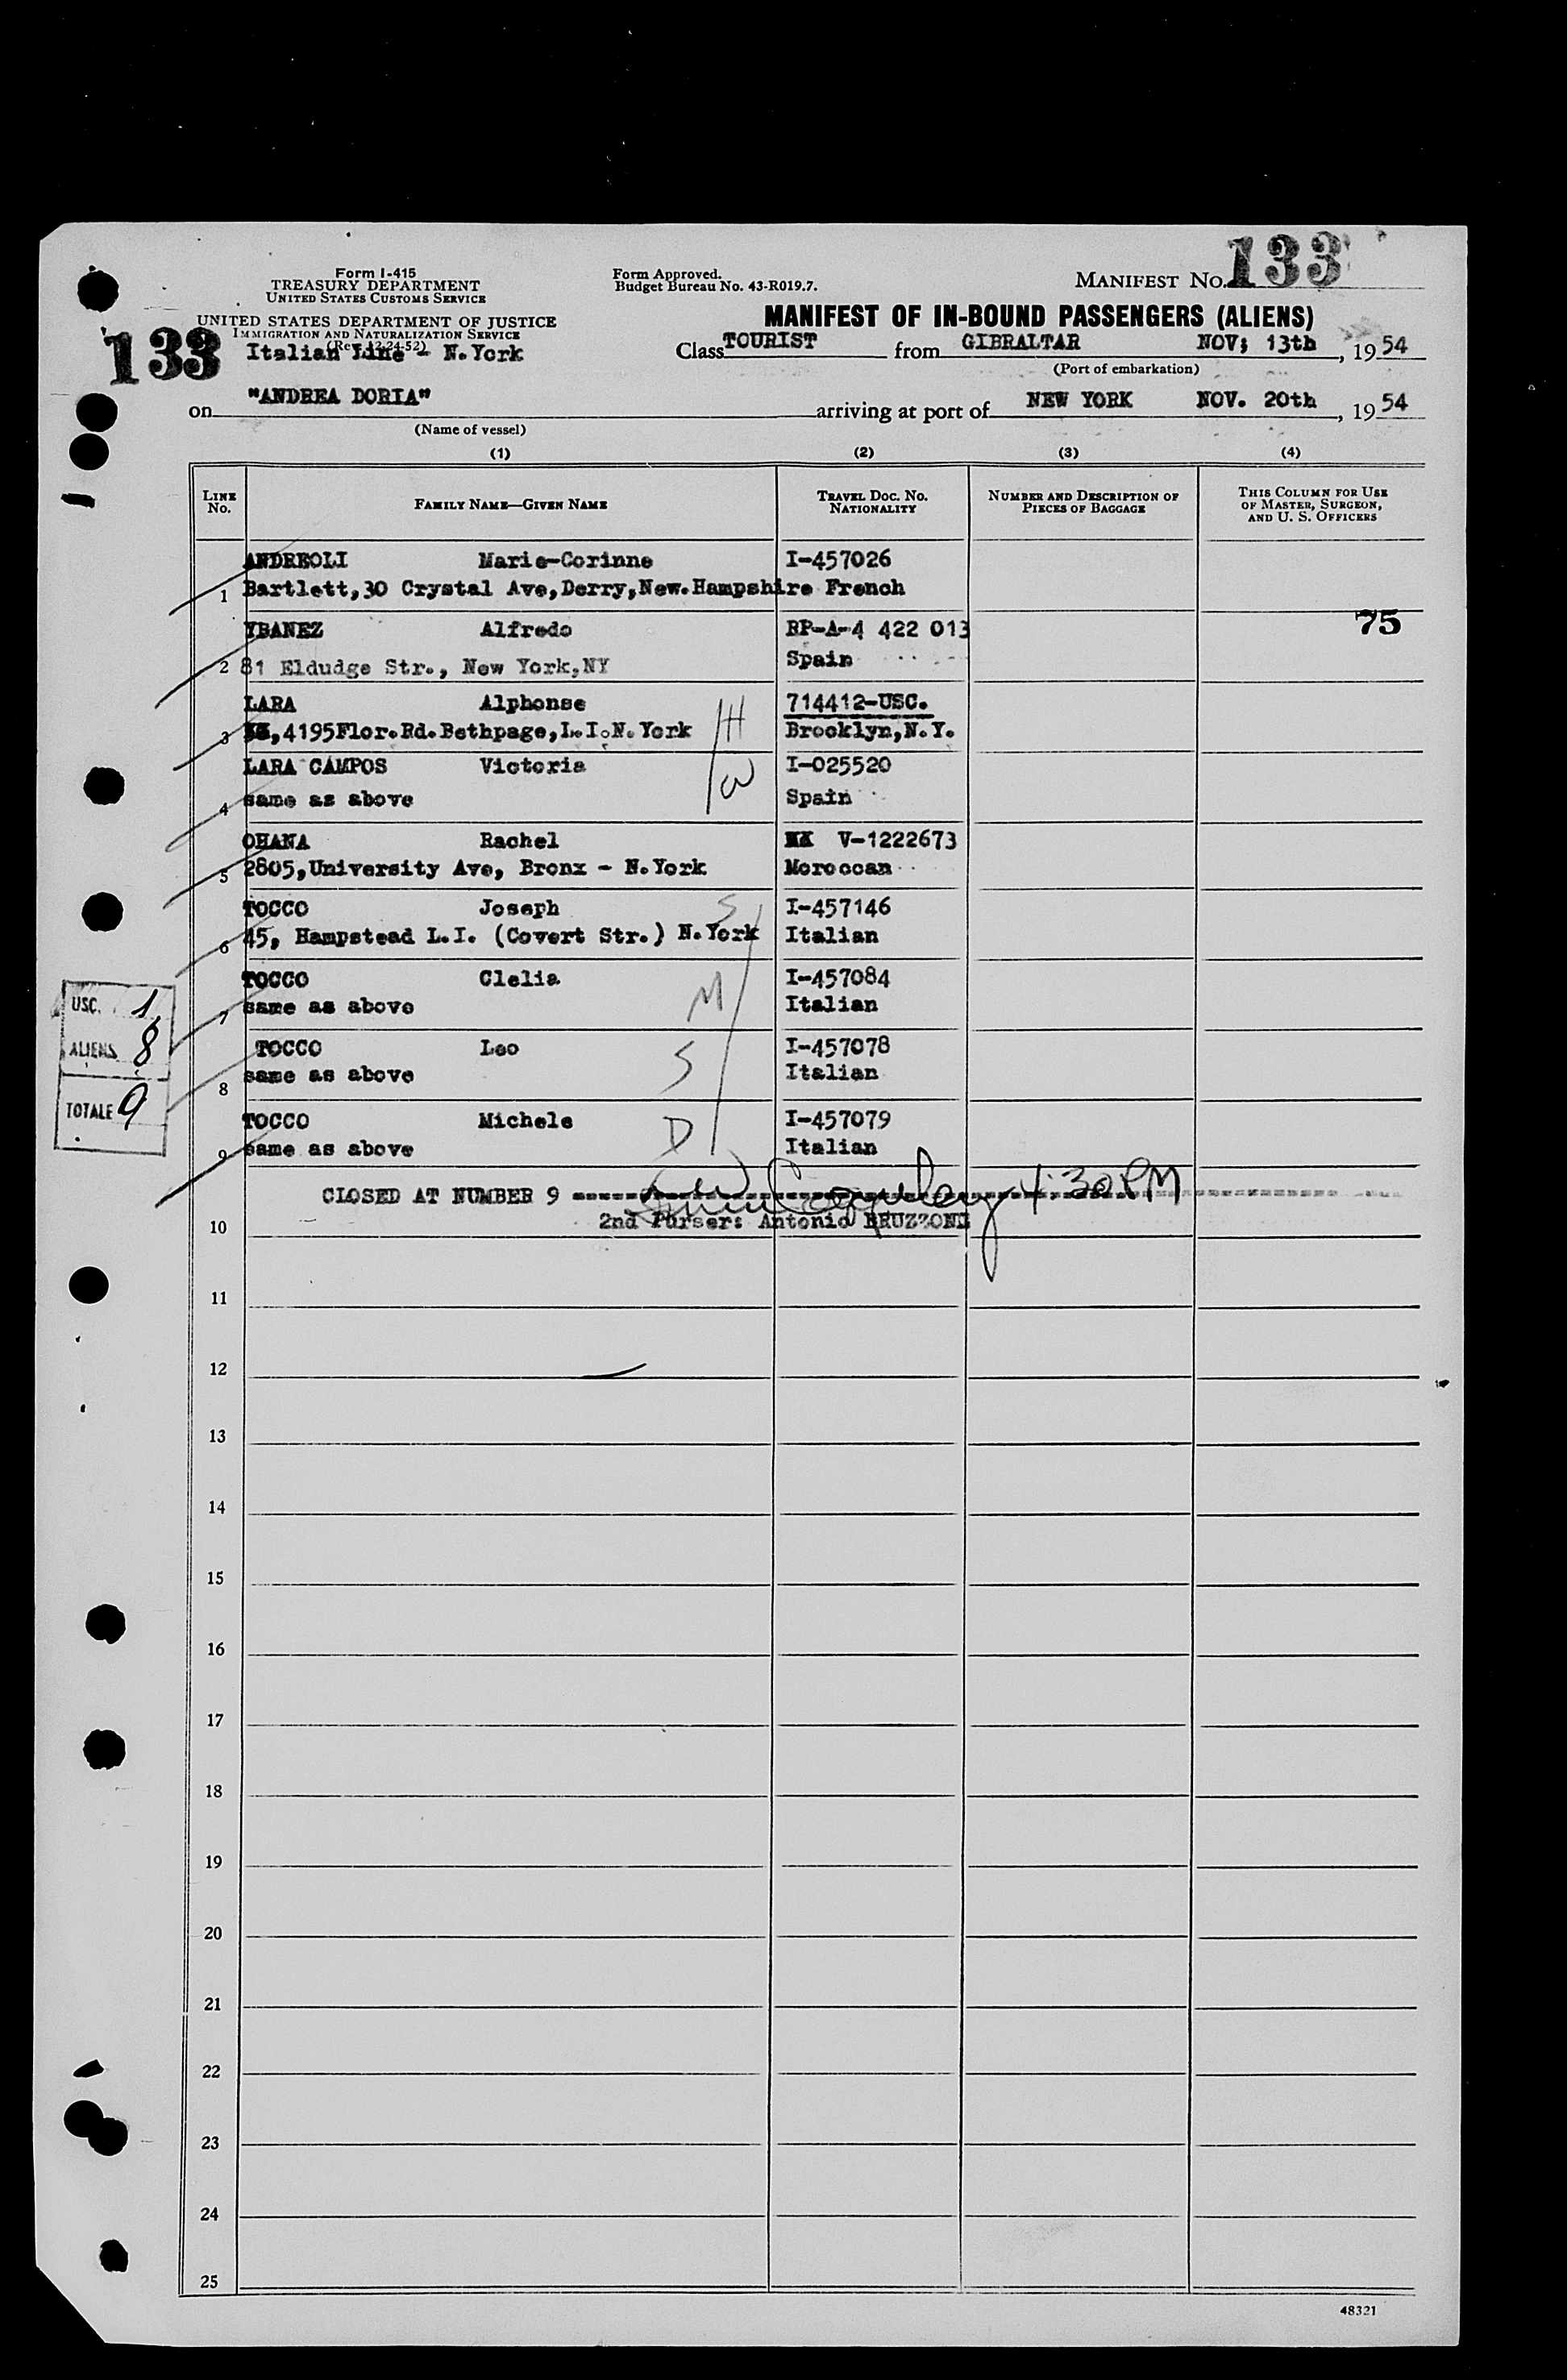 133
Form I-415
TREASURY DEPARTMENT
UNITED STATES CUSTOMS SERVICE
Form Approved.
Budget Bureau No. 43-R019.7.
MANIFEST NO. 133
UNITED STATES DEPARTMENT OF JUSTICE
IMMIGRATION AND NATURALIZATION SERVICE
(Rev. 12-24-52)
Italian Line - N.York
MANIFEST OF IN-BOUND PASSENGERS (ALIENS)
Class TOURIST from GIBRALTAR NOV; 13th, 1954
(Port of embarkation)
on "ANDREA DORIA" arriving at port of NEW YORK NOV. 20th, 1954
(Name of vessel)
(1) (2) (3) (4)
LINE No. FAMILY NAME—GIVEN NAME TRAVEL DOC. NO. NATIONALITY NUMBER AND DESCRIPTION OF PIECES OF BAGGAGE THIS COLUMN FOR USE OF MASTER, SURGEON, AND U. S. OFFICERS
ANDREOLI Marie-Corinne I-457026
1 Bartlett,30 Crystal Ave,Derry,New.Hampshire French
YBANEZ Alfredo RP-A-4 422 013 75
2 81 Eldudge Str., New York,NY Spain
LARA Alphonse H 714412-USC.
3 ,4195Flor.Rd.Bethpage,L.I.N.York Brooklyn,N.Y.
LARA CAMPOS Victoria W I-025520
4 same as above Spain
OHANA Rachel V-1222673
5 2805,University Ave, Bronx - N.York Moroccan
TOCCO Joseph S I-457146
6 45, Hampstead L.I. (Covert Str.) N.York Italian
TOCCO Clelia M I-457084
7 same as above Italian
TOCCO Leo S I-457078
8 same as above Italian
TOCCO Michele D I-457079
9 same as above Italian
USC. 1
ALIENS 8
TOTALE 9
CLOSED AT NUMBER 9 4:30 PM
10 2nd Purser: Antonio BRUZZONE
11
12
13
14
15
16
17
18
19
20
21
22
23
24
25
48321